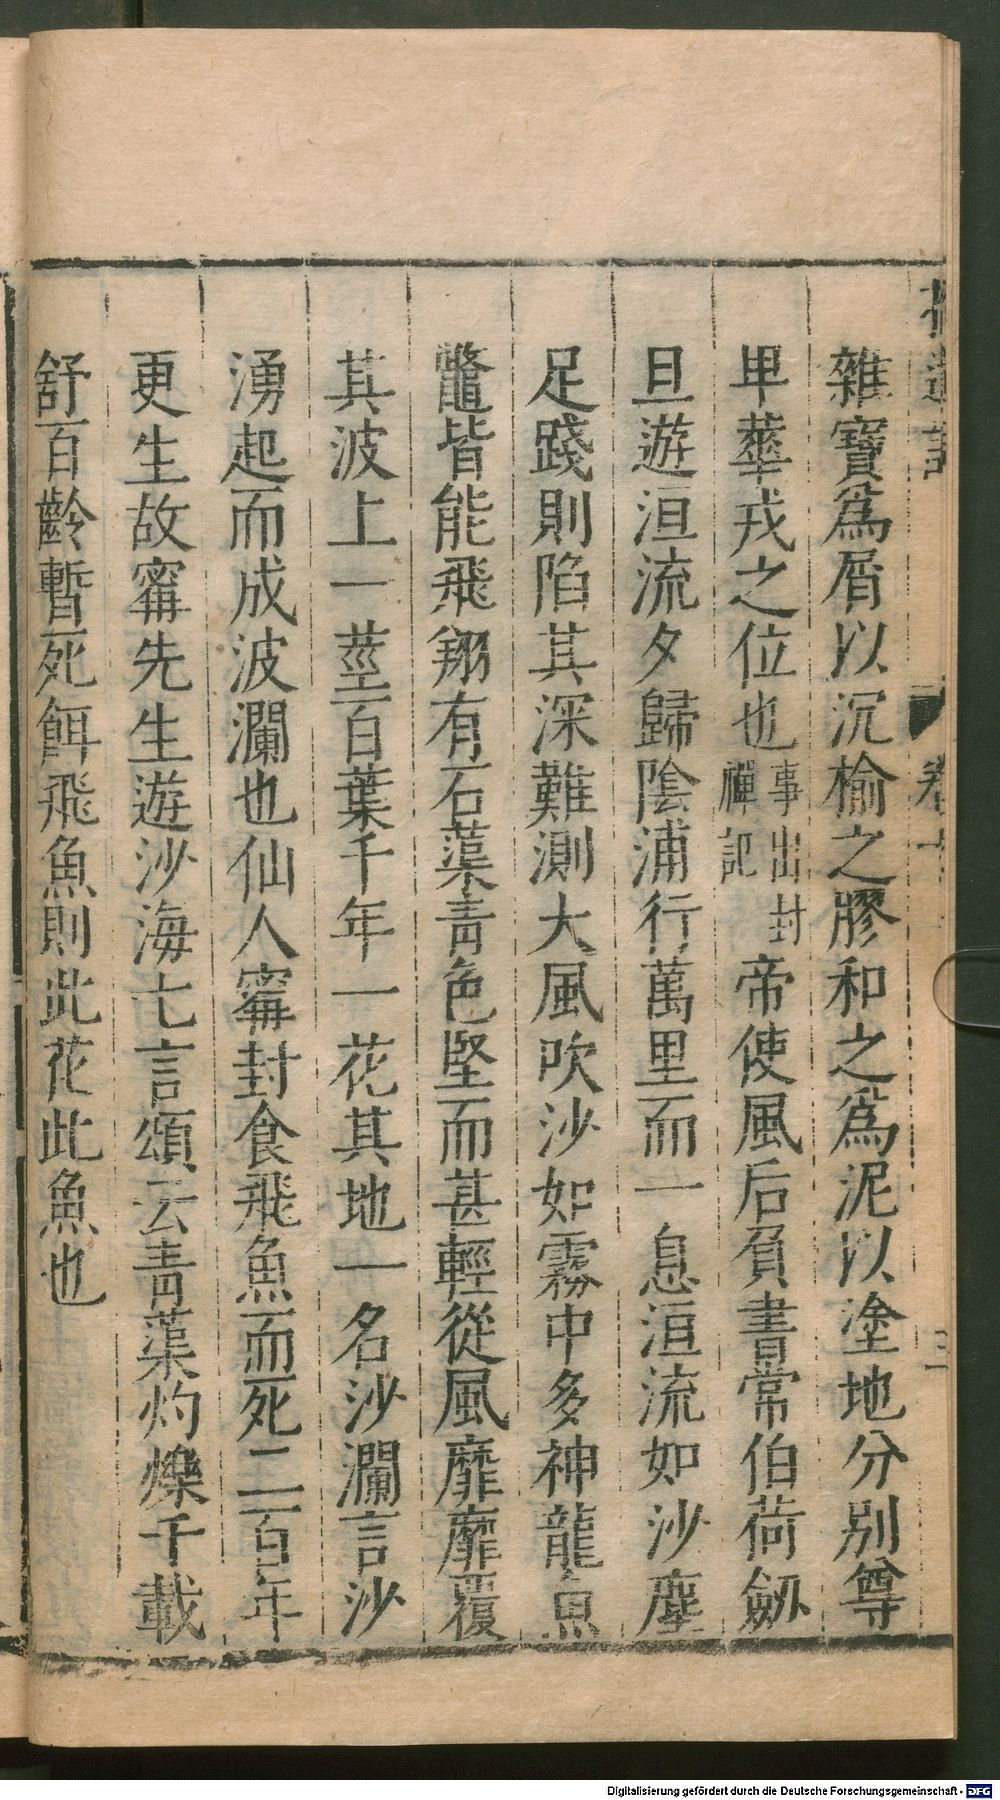 拾遺記
卷一
三
雜寶爲屑以沉榆之膠和之爲泥以塗地分別尊
甲華戎之位也事出封禪記帝使風后負書常伯荷劔
旦遊洹流夕歸陰浦行萬里而一息洹流如沙塵
足踐則陷其深難測大風吹沙如霧中多神龍魚
鼈皆能飛翔有石蕖青色堅而甚輕從風靡靡覆
其波上一莖百葉千年一花其地一名沙瀾言沙
湧起而成波瀾也仙人寗封食飛魚而死二百年
更生故寗先生遊沙海七言頌云青蕖灼爍千載
舒百齡暫死餌飛魚則此花此魚也
Digitalisierung gefördert durch die Deutsche Forschungsgemeinschaft - DFG